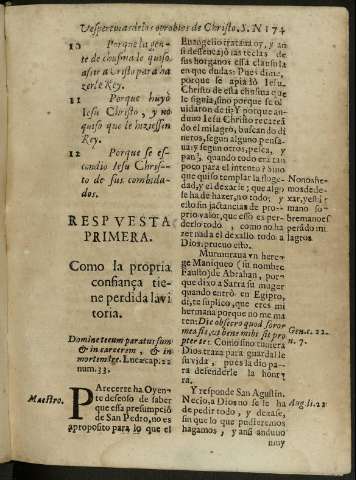 Vesperturas de las oprobios de Christo, S. N 174
10 Porque la gen-
te de chusma lo quiso
asir a Cristo para ha
zerle Rey.
11 Porque huyò
Iesu Christo, y no
quiso que le hiziessen
Rey.
12 Porque se es-
condio Iesu Chris-
to de sus combida-
dos.
RESPVESTA
PRIMERA.
Como la propria
confiança tie-
ne perdida la vi
toria.
Domine tecum paratus sum
& in carcerem, & in
mortem ire. Luc. cap. 22
num. 33.
Maestro.
PArecerte ha Oyen-
te deseoso de saber
que essa presumpciõ
de San Pedro, no es
a proposito para lo que el
Euangelio trata oy, y an
si dessencajò las teclas de
sus horganos essa clausula
en que dudas: Pues dime,
porque se apiadò Iesu
Christo de essa chusma que
le siguia, sino porque se ol
uidaron de si? Y porque an
duuo Iesu Christo recatea
do el milagro, buscando di
neros, segun alguno pensa-
ua y segun otros, pelca, y
pan, quando todo era tan
poco para el intento? Sino
que quiso templar la floge-
dad, y el dexarse; que algo
se ha de hazer, no todo; y
echo sin jactancias de pro-
prio valor, que esso es per
derlo todo, como no ha
zer nada el dexallo todo a
Dios. prueuo esto.
Nonos he-
mos de de-
xar, y est a
mano so-
bremano es
perado mi
lagros.
Murmuraua vn here-
ge Maniqueo (su nombre
Fausto) de Abrahan, por-
que dixo a Sarra su muger
quando entrò en Egipto,
di, te suplico, que eres mi
hermana porque no me ma
ten: Dic obsecro quod soror
mea sis, vt bene mihi sit pro
pter te: Como sino tuuiera
Dios traza para guardalle
su vida, pues la dio pa-
ra defenderle la honr
ra.
Gen. c. 22.
n. 7.
Y responde San Agustin.
Necio, a Dios no se le ha
de pedir todo, y dexarse,
sin que lo que pudieremos
hagamos, y ansi anduuo
muy
Aug. li. 22